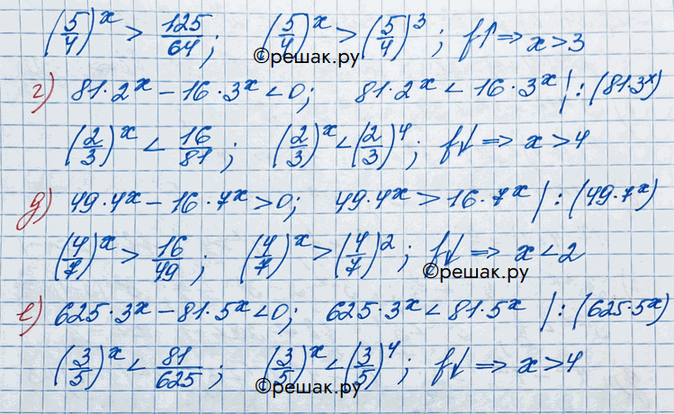 (5/4)^x > 125/64; (5/4)^x > (5/4)^3; f↑ ⇒ x>3
©решак.ру
г) 81·2^x − 16·3^x < 0; 81·2^x < 16·3^x |:(81·3^x)
(2/3)^x < 16/81; (2/3)^x < (2/3)^4; f↓ ⇒ x>4
д) 49·4^x − 16·7^x > 0; 49·4^x > 16·7^x |:(49·7^x)
©решак.ру
(4/7)^x > 16/49; (4/7)^x > (4/7)^2; f↓ ⇒ x<2
©решак.ру
е) 625·3^x − 81·5^x < 0; 625·3^x < 81·5^x |:(625·5^x)
(3/5)^x < 81/625; (3/5)^x < (3/5)^4; f↓ ⇒ x>4
©решак.ру